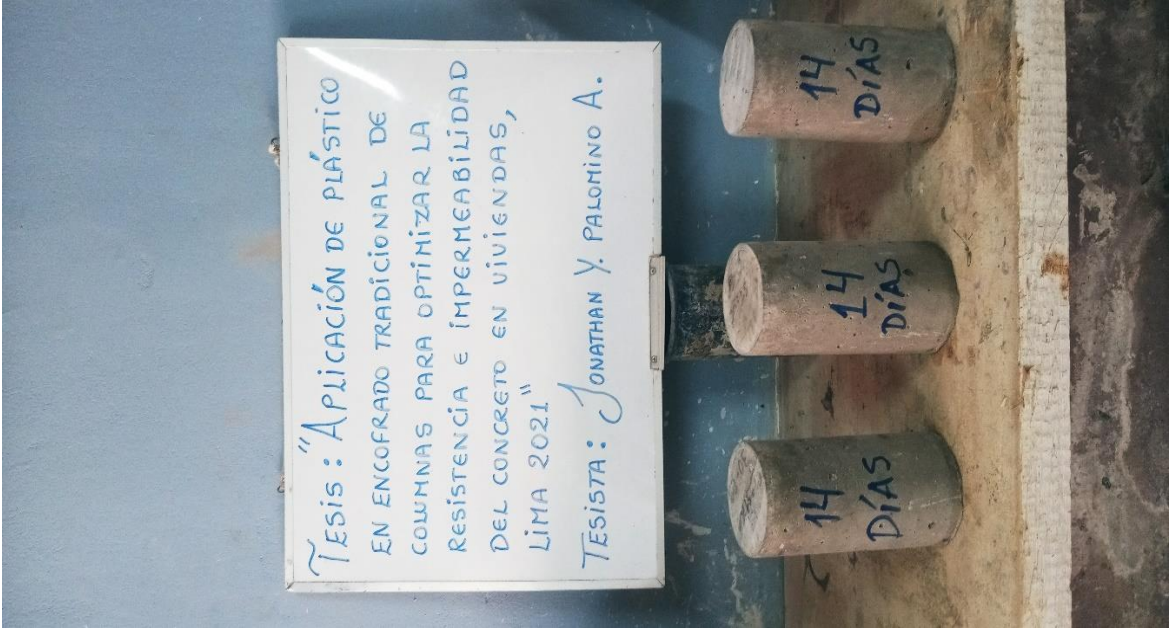 TESiS: "APLiCACiÓN DE PLÁSTiCO
EN ENCOFRADO TRADiCiONAL DE
COLUMNAS PARA OPTiMiZAR LA
RESiSTENCiA E iMPERMEABiLiDAD
DEL CONCRETO EN ViViENDAS,
LiMA 2021"
TESiSTA: JONATHAN Y. PALOMiNO A.
14
DíAS
14
DíAS
14
DíAS